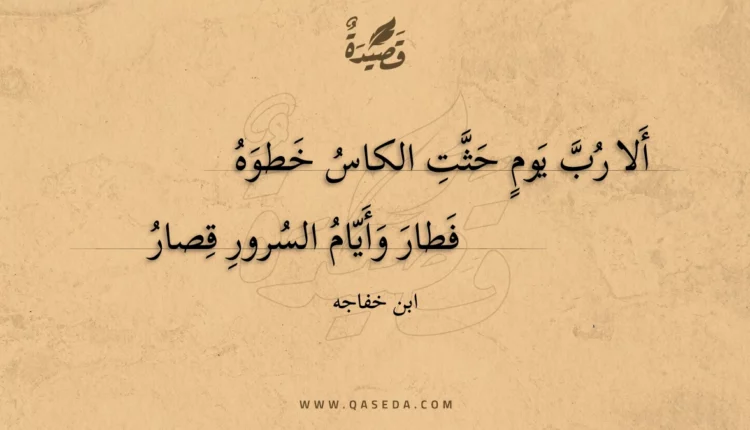 قَصِيدَةٌ
أَلا رُبَّ يَومٍ حَثَّتِ الكاسُ خَطوَهُ
فَطارَ وَأَيّامُ السُرورِ قِصارُ
ابن خفاجه
WWW.QASEDA.COM